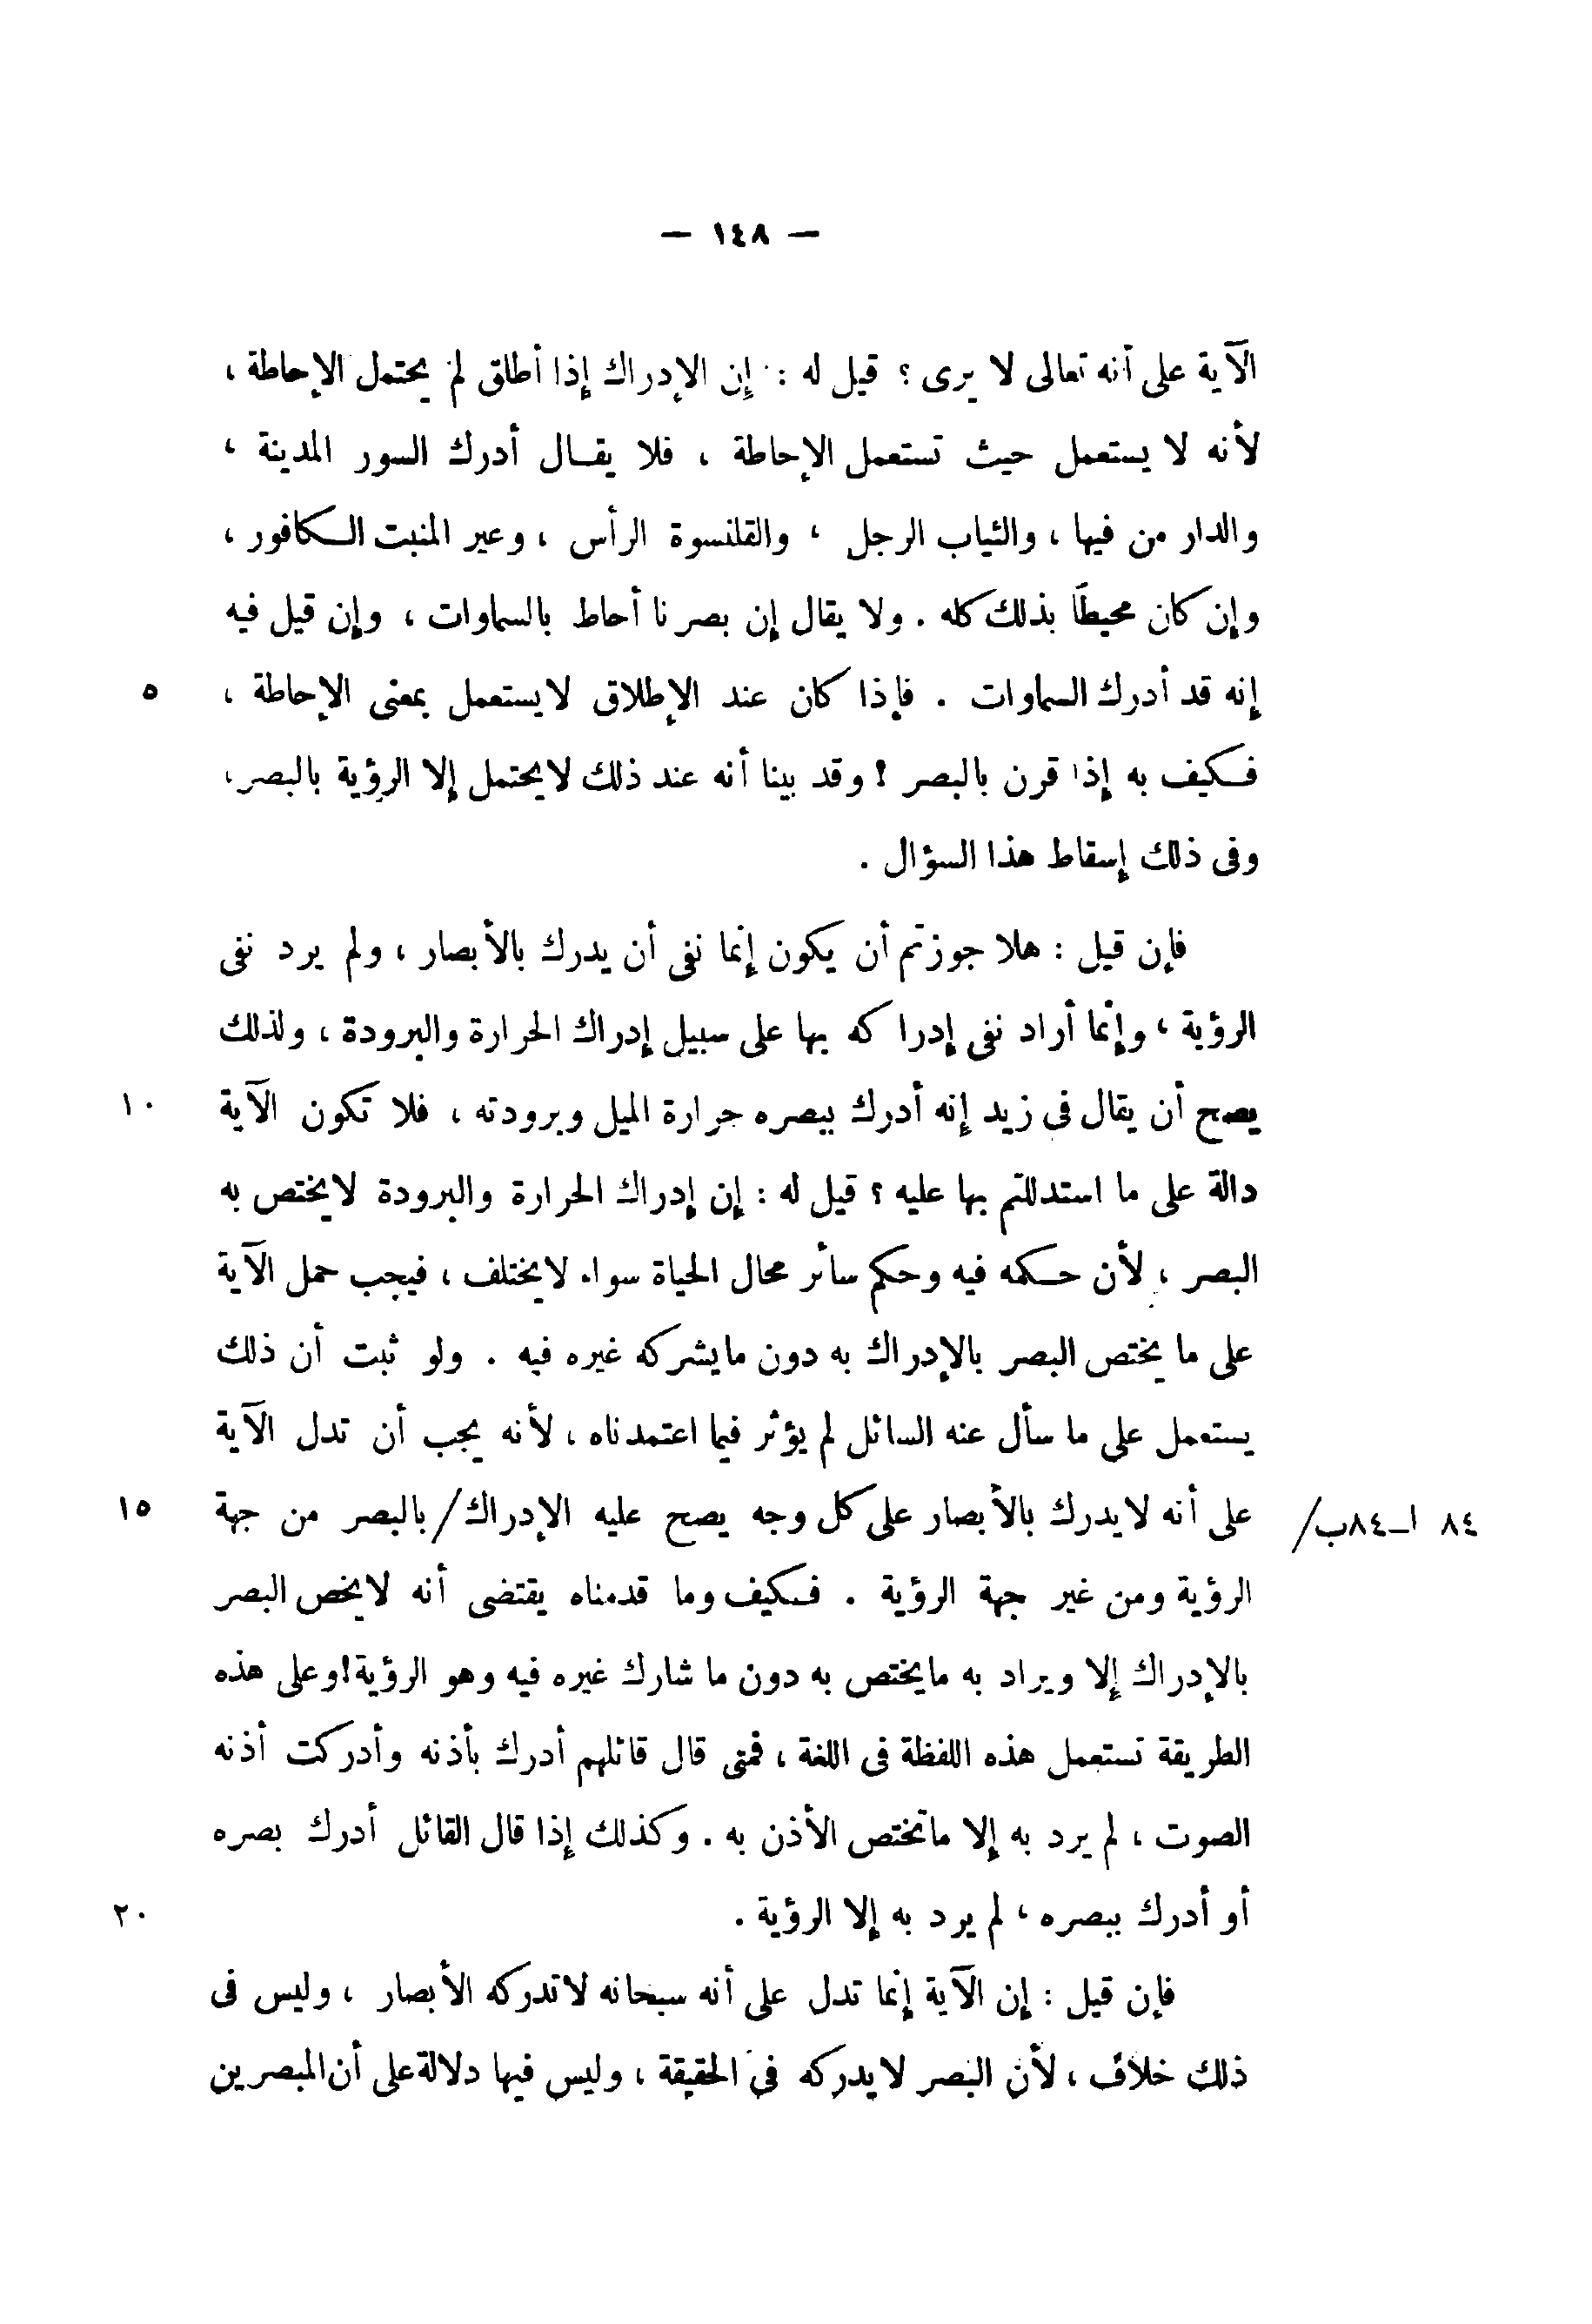 — ١٤٨ —
الآية على أنه تعالى لا يرى ؟ قيل له : إن الإدراك إذا أطلق لم يحتمل الإحاطة ،
لأنه لا يستعمل حيث تستعمل الإحاطة ، فلا يقال أدرك السور المدينة ،
والدار من فيها ، والثياب الرجل ، والقلنسوة الرأس ، وعير المنبت الكافور ،
وإن كان محيطًا بذلك كله . ولا يقال إن بصرنا أحاط بالسماوات ، وإن قيل فيه
إنه قد أدرك السماوات . فإذا كان عند الإطلاق لا يستعمل بمعنى الإحاطة ، ٥
فكيف به إذا قرن بالبصر ! وقد بينا أنه عند ذلك لا يحتمل إلا الرؤية بالبصر ،
وفى ذلك إسقاط هذا السؤال .
فإن قيل : هلا جوزتم أن يكون إنما نفى أن يدرك بالأبصار ، ولم يرد نفى
الرؤية ، وإنما أراد نفى إدراكه بها على سبيل إدراك الحرارة والبرودة ، ولذلك
يصح أن يقال فى زيد إنه أدرك ببصره حرارة الميل وبرودته ، فلا تكون الآية ١٠
دالة على ما استدللتم بها عليه ؟ قيل له : إن إدراك الحرارة والبرودة لا يختص به
البصر ، لأن حكمه فيه وحكم سائر محال الحياة سواء لا يختلف ، فيجب حمل الآية
على ما يختص البصر بالإدراك به دون ما يشركه غيره فيه . ولو ثبت أن ذلك
يستعمل على ما سأل عنه السائل لم يؤثر فيما اعتمدناه ، لأنه يجب أن تدل الآية
٨٤ ا_٨٤ب/ على أنه لا يدرك بالأبصار على كل وجه يصح عليه الإدراك/ بالبصر من جهة ١٥
الرؤية ومن غير جهة الرؤية . فكيف وما قدمناه يقتضى أنه لا يخص البصر
بالإدراك إلا ويراد به ما يختص به دون ما شارك غيره فيه وهو الرؤية ! وعلى هذه
الطريقة تستعمل هذه اللفظة فى اللغة ، فمتى قال قائلهم أدرك بأذنه وأدركت أذنه
الصوت ، لم يرد به إلا ما تختص الأذن به . وكذلك إذا قال القائل أدرك بصره
أو أدرك ببصره ، لم يرد به إلا الرؤية . ٢٠
فإن قيل : إن الآية إنما تدل على أنه سبحانه لا تدركه الأبصار ، وليس فى
ذلك خلاف ، لأن البصر لا يدركه فى الحقيقة ، وليس فيها دلالة على أن المبصرين